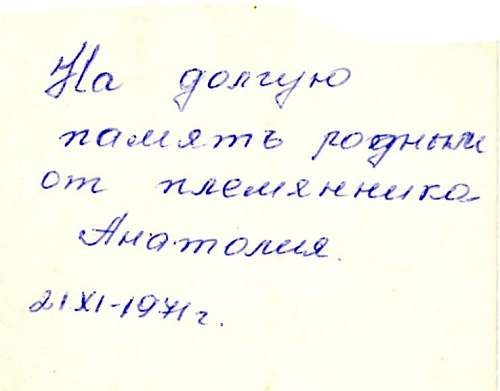 На долгую
память родным
от племянника
Анатолия.
21 XI-1971 г.